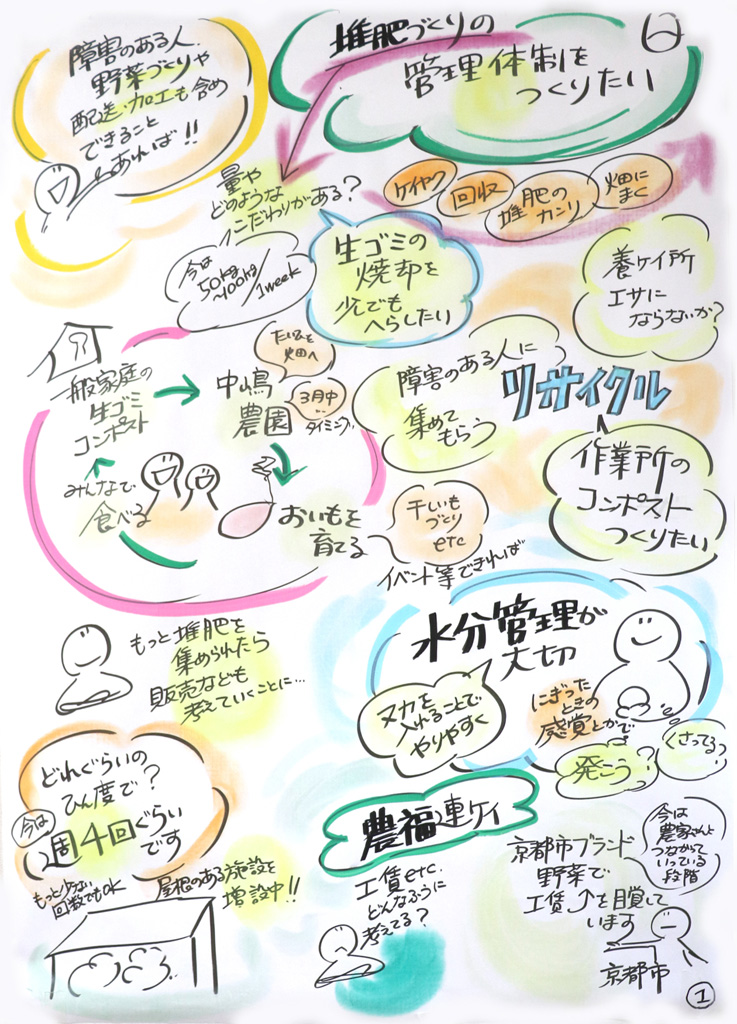 障害のある人.
野菜づくりや
配送・加工も含め
できること
あれば!!
堆肥づくりの
管理体制を
つくりたい
量や
どのような
こだわりがある?
今は
50kg
~100kg/1week
生ゴミの
焼却を
少しでも
へらしたい
ケイヤク
回収
堆肥の
カンリ
畑に
まく
養ケイ所
エサに
ならないか?
一般家庭の
生ゴミ
コンポスト
中嶋
農園
たい肥を
畑へ
3月中
…
タイミング!!
おいもを
育てる
みんなで
食べる
干しいも
づくり
etc
イベント等できれば
障害のある人に
集めて
もらう
リサイクル
作業所の
コンポスト
つくりたい
もっと堆肥を
集められたら
販売なども
考えていくことに…
水分管理が
大切
ヌカを
入れることで
やりやすく
にぎった
ときの
感覚とかで
発こう?
くさってる?
どれぐらいの
ひん度で?
今は
週4回ぐらい
です
もっと少ない
回数でもOK
屋根のある施設を
増設中!!
農福連ケイ
工賃etc.
どんなふうに
考えてる?
京都市ブランド
野菜で
工賃↑を目覚して
います
今は
農家さんと
つながって
いっている
段階
京都市
1